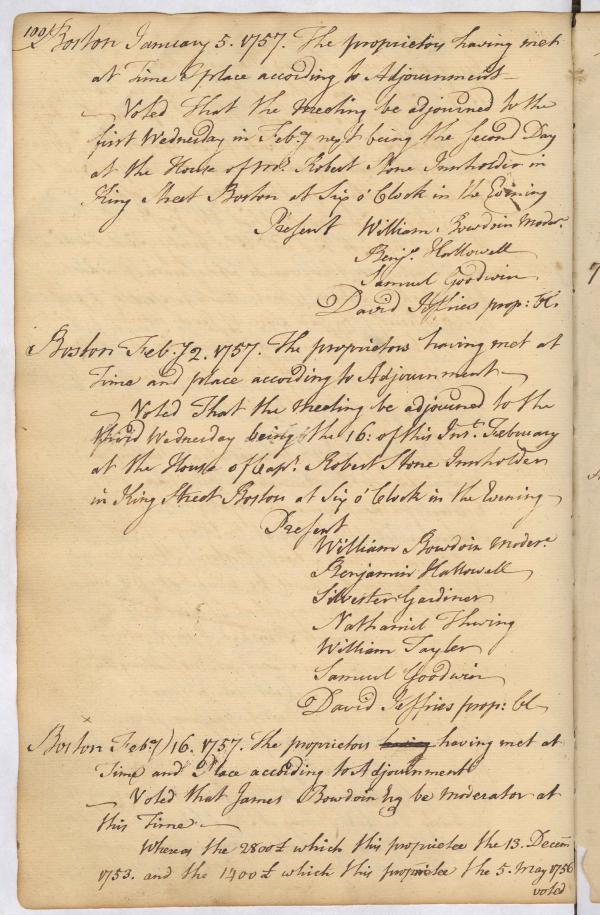 100
Boston January 5. 1757. The proprietors having met
at Time & place according to Adjournment
Voted That the Meeting be adjourned to the
first Wednesday in Feb:y next being the Second Day
at the House of Robert Stone Innholder in
King Street Boston at Six o'Clock in the Evening
Present William Bowdoin Moder.
Benj. Hallowell
Samuel Goodwin
David Jeffries prop: Cl.
Boston Feb:y 2. 1757. The proprietors having met at
Time and place according to Adjournment
Voted That the Meeting be adjourned to the
third Wednesday being the 16: of this Inst. February
at the House of Capt. Robert Stone Innholder
in King Street Boston at Six o'Clock in the Evening
Present
William Bowdoin Moder.
Benjamin Hallowell
Silvester Gardiner
Nathaniel Thwing
William Tayler
Samuel Goodwin
David Jeffries prop: Cl
Boston Feb:y 16. 1757. The proprietors having having met at
Time and Place according to Adjournment
Voted that James Bowdoin Esq be Moderator at
this Time
Whereas the 2800£ which this proprietee the 13. Decem
1753. and the 1400£ which this proprietee the 5. May 1756
voted